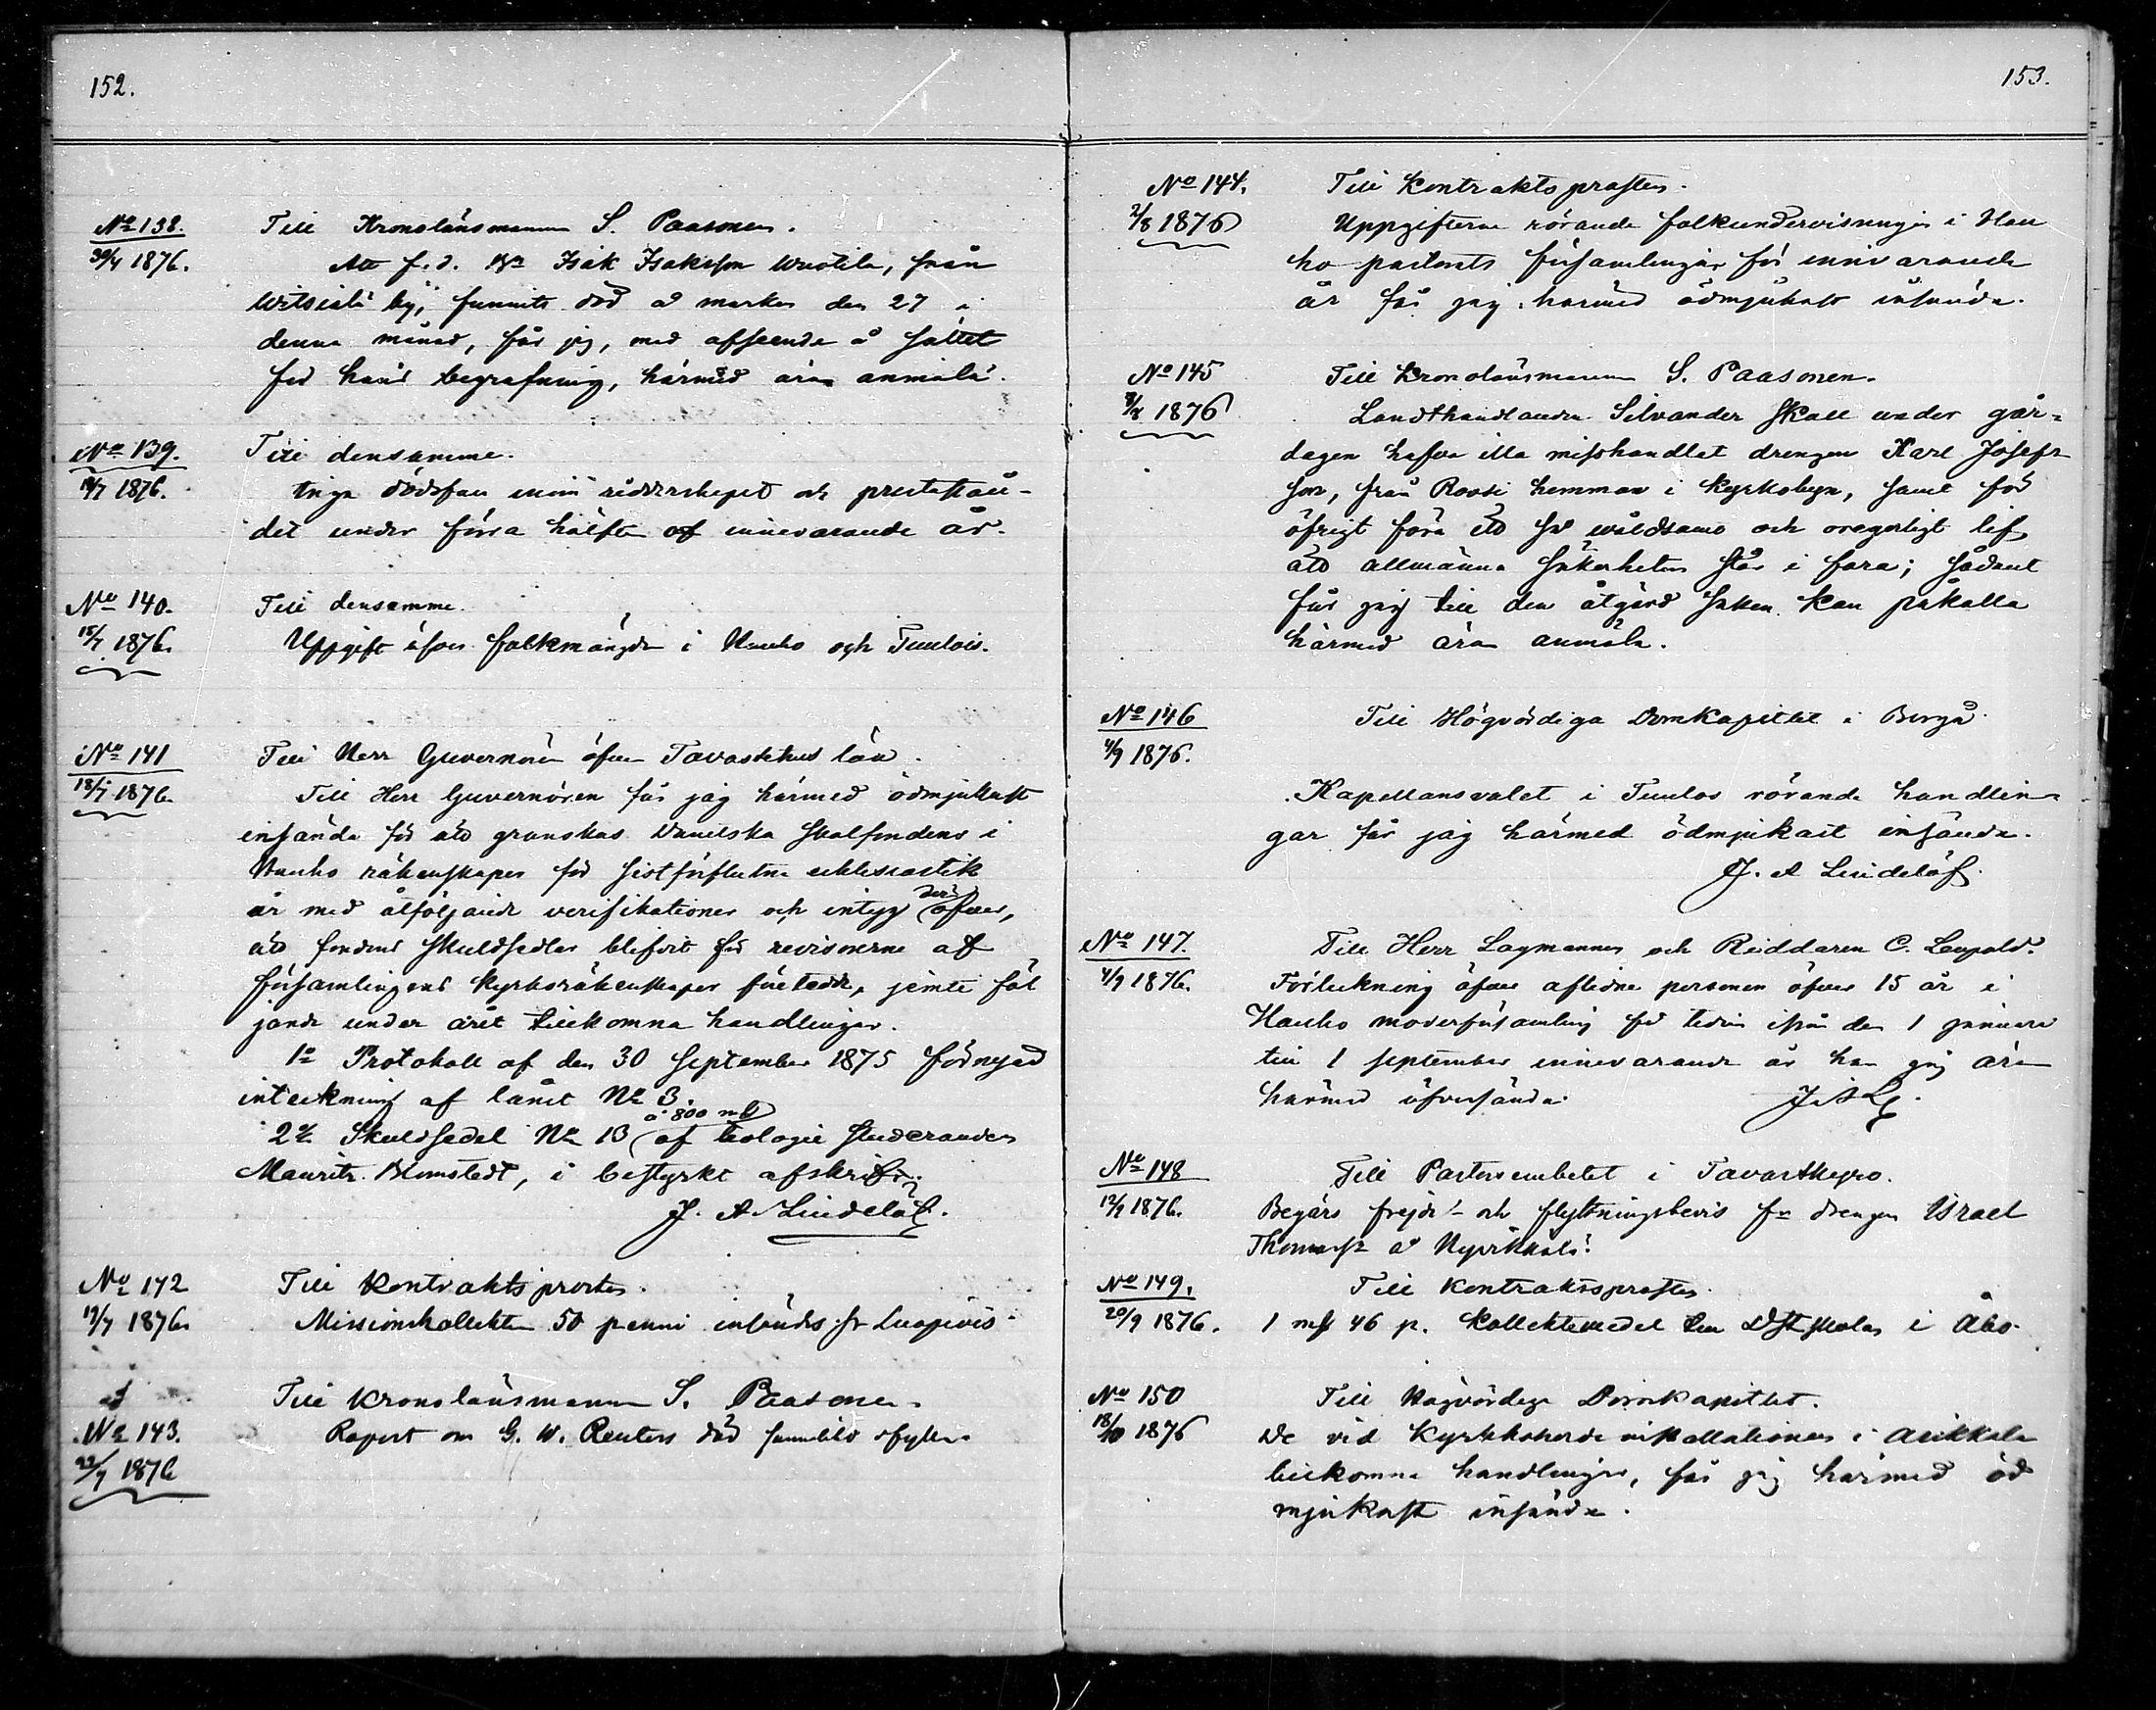 152.
No 138.
30/4 1876.
Till Kronolänsmannen S. Paasonen.
Att f. d. Isak Isaksson från
by, funnits död å marken den 27 i
denna månad, får jag, med afseende å sättet
för hans begrafning, härmed äran anmäla.
No 139.
1876.
Till densamme.
Inga dödsfall inom ridderskapet och prestestån-
det under förra hälften af innevarande år.
No 140.
15/7 1876.
Till densamme.
Uppgift öfver folkmängden i Hauho och Tuulois.
No 141
18/7 1876.
Till Herr Guvernören öfver Tavastehus län.
Till Herr Guvernören får jag härmed ödmjukast
insända för att granskas skolfondens i
Hauho räkenskaper för sistförflutna ecklesiastik
år med åtföljande verifikationer och intyg deröfver,
att fondens skuldsedlar blifvit för revisorerne af
församlingens kyrkoräkenskaper företedda, jemte föl
jande under året tillkomna handlingar.
1o Protokoll af den 30 September 1875 förnyad
inteckning af lånet No 3.
2o Skuldsedel No 13 à 800 mk af teologie studeranden
Maurits Blomstedt, i bestyrkt afskrift.
J. A. Lindelöf.
No 142
19/7 1876.
Till Kontraktsprosten.
Missionskollekten 50 penni insändes fr Luopiois
No 143.
22/7 1876
Till Kronolänsmannen S. Paasonen.
Raport om G. W. Reuters död
153.
No 144.
2/8 1876
Till Kontraktsprosten.
Uppgifterna rörande folkundervisningen i Hau
ho pastorats församlingar för innevarande
år får jag härmed ödmjukast insända.
No 145
8/8 1876
Till Kronolänsmannen S. Paasonen.
Landthandlanden Silvander skall under går-
dagen hafva illa misshandlat drengen Karl Josefs
son, från Rossi hemman i Kyrkobyn, samt för
öfrigt föra ett så våldsamt och oregerligt lif
att allmänna säkerheten står i fara; sådant
får jag till den åtgärd saken kan påkalla
härmed äran anmäla.
No 146
4/9 1876.
Till Högvördiga Domkapitlet i Borgå.
Kapellansvalet i Tuulos rörande handlin-
gar får jag härmed ödmjukast insända.
J. A Lindelöf.
No 147.
4/9 1876.
Till Herr Lagmannen och Riddaren C. Leopold.
Förteckning öfver aflidne personer öfver 15 år i
Hauho moderförsamling för tiden ifrån den 1 januari
till 1 september innevarande år har jag äran
härmed öfversända. J. A L.
No 148
12/9 1876.
Till Pastorsembetet i Tavastkyro.
Begärs frejde- och flyttningsbevis fr drengen Israel
Thomass. å
No 149.
20/9 1876.
Till Kontraktsprosten.
1 mk 46 p. Kollektmedel till skolan i Åbo.
No 150
18/10 1876
Till Högvördiga Domkapitlet.
De vid Kyrkoherde installationen i Asikkala
tillkomna handlingar, får jag härmed öd
mjukast insända.